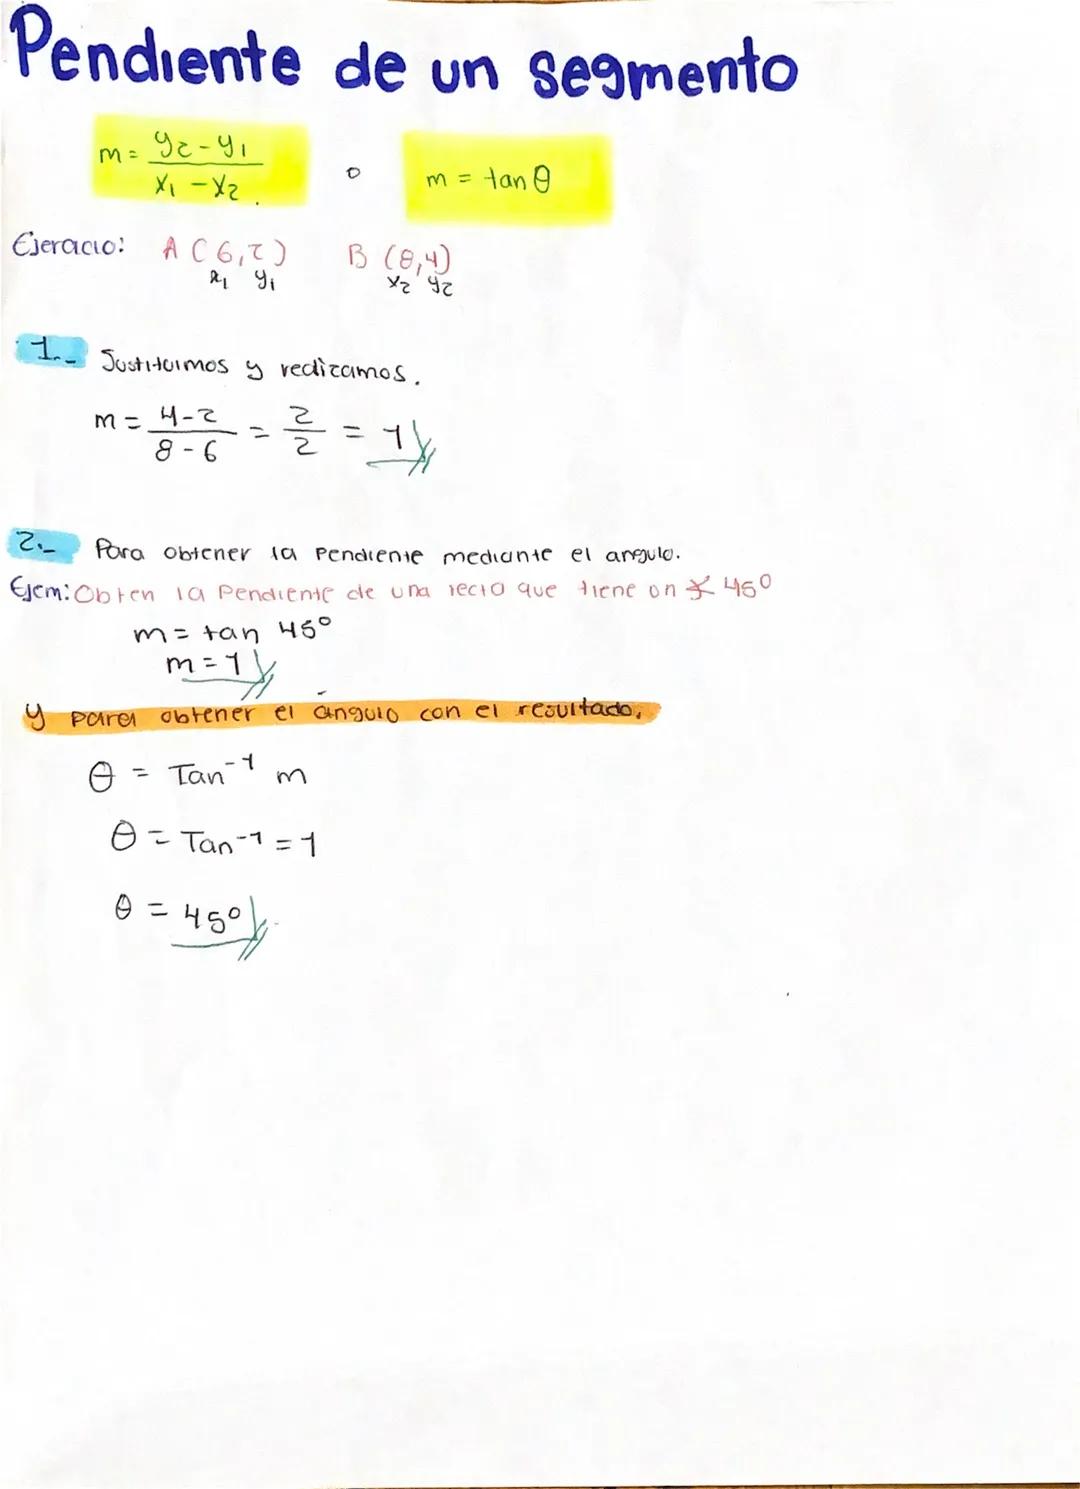 Pendiente de un segmento
m = y2 - y1 / x1 - x2 o m = tan θ
Ejercicio: A (6,2) B (8,4)
x1 y1 x2 y2
1.- Sustituimos y realizamos.
m = 4-2 / 8-6 = 2/2 = 1
2.- Para obtener la pendiente mediante el angulo.
Ejem: Obten la pendiente de una recta que tiene un ∡ 45°
m = tan 45°
m = 1
y para obtener el ángulo con el resultado.
θ = Tan⁻¹ m
θ = Tan⁻¹ = 1
θ = 45°